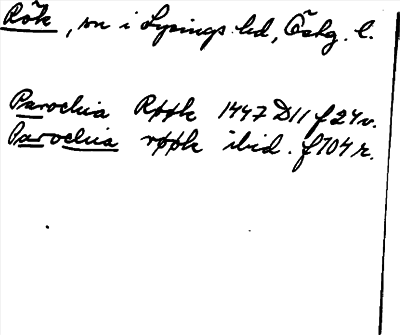 Rök, sn i Lysings hd, Östg. l.
Parochia Røøk 1447 D11 f 24v.
Parochia røøk ibid. f 104 r.